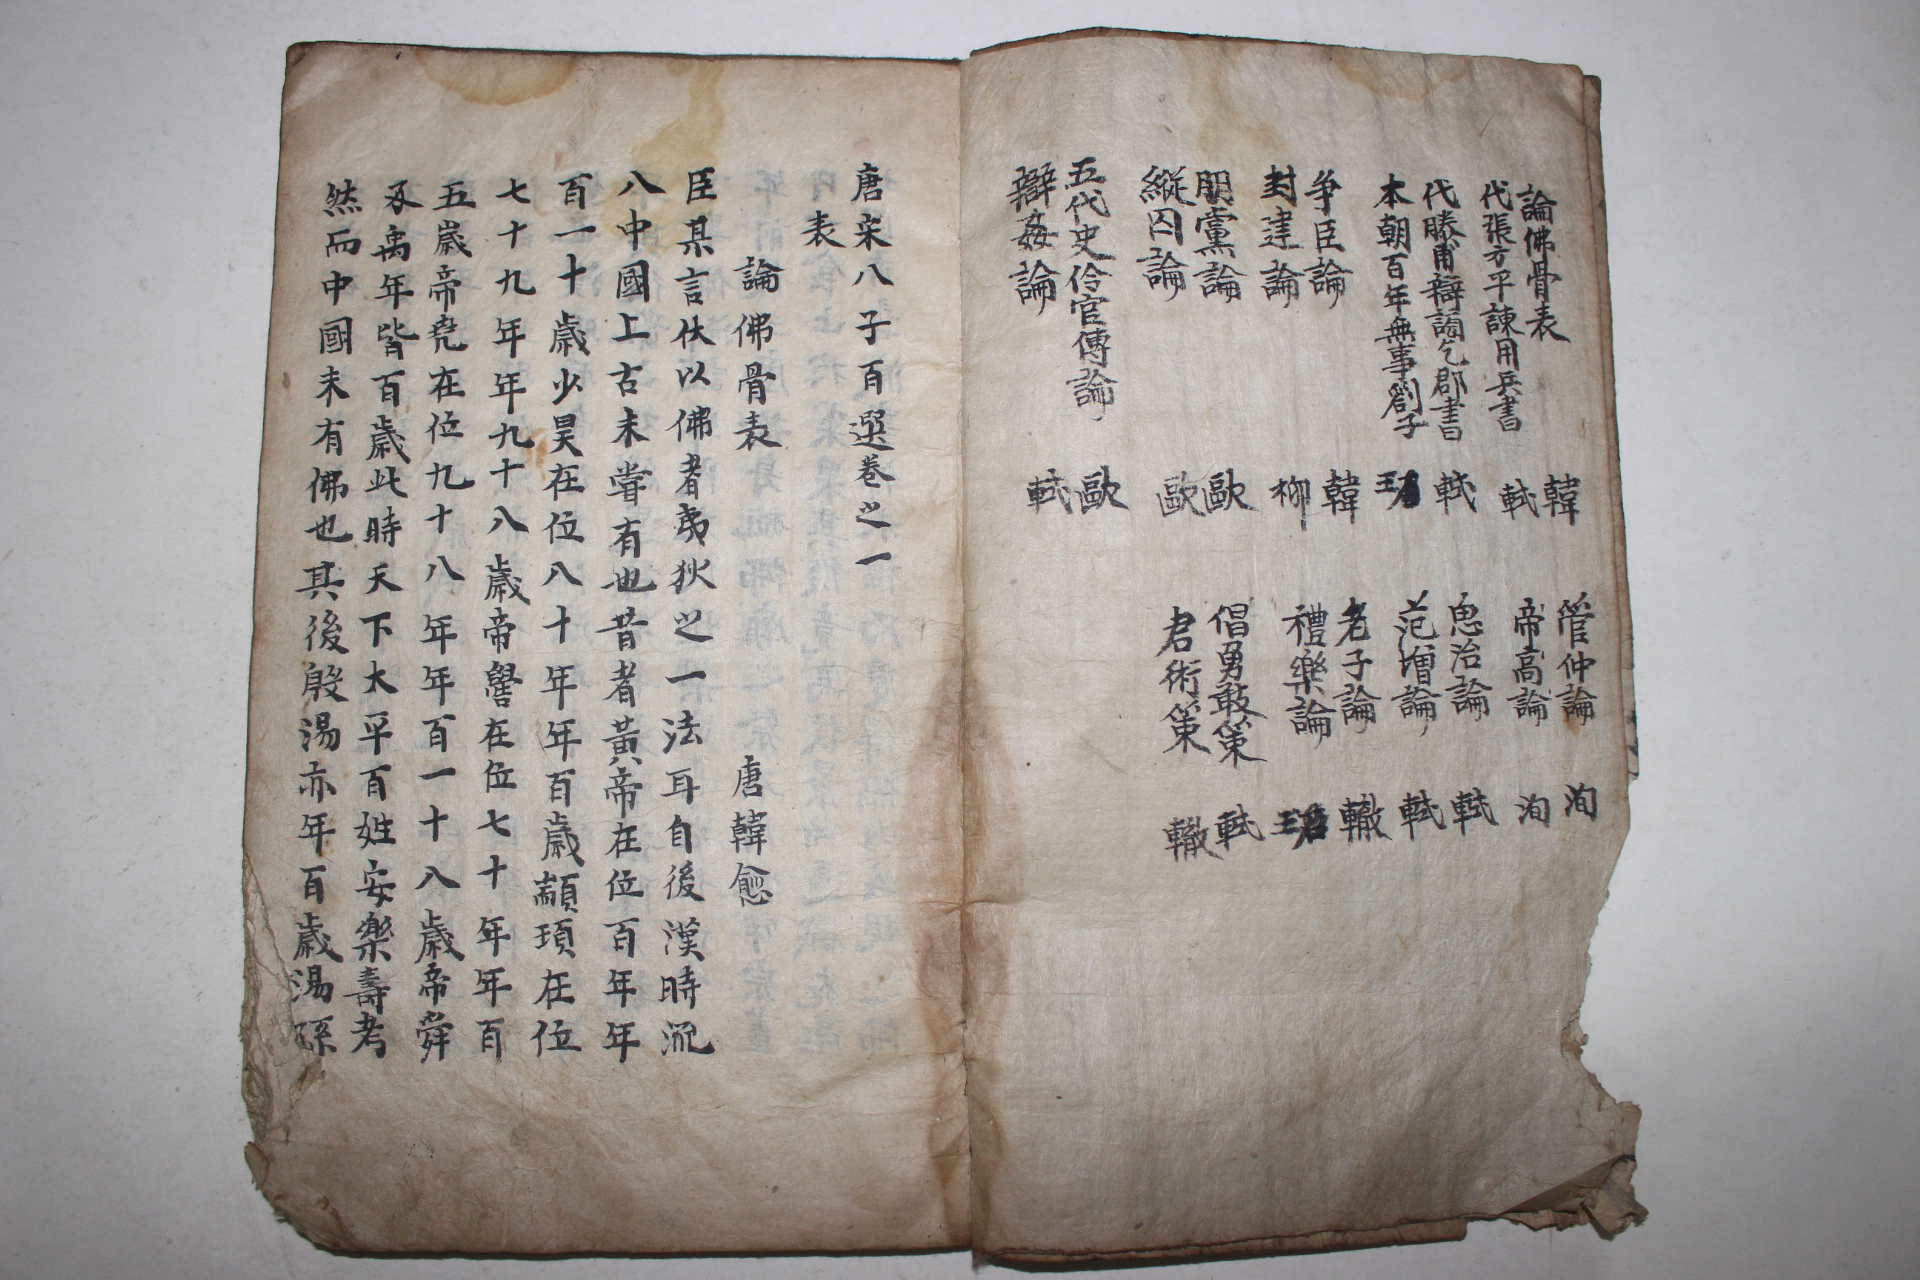 論佛骨表 韓
代張方平諫用兵書 軾
代滕甫辯謗乞郡書 軾
本朝百年無事劄子
爭臣論 韓
封建論 柳
朋黨論 歐
縱囚論 歐
五代史伶官傳論 歐
辯姦論 軾
管仲論 洵
帝高論 洵
思治論 軾
范增論 軾
老子論 轍
禮樂論
倡勇敢策 軾
君術策 轍
唐宋八子百選卷之一
表
論佛骨表 唐韓愈
臣某言伏以佛者夷狄之一法耳自後漢時流
八中國上古未嘗有也昔者黃帝在位百年年
百一十歲少昊在位八十年年百歲顓頊在位
七十九年年九十八歲帝嚳在位七十年年百
五歲帝堯在位九十八年年百一十八歲帝舜
及禹年皆百歲此時天下太平百姓安樂壽考
然而中國未有佛也其後殷湯亦年百歲湯孫